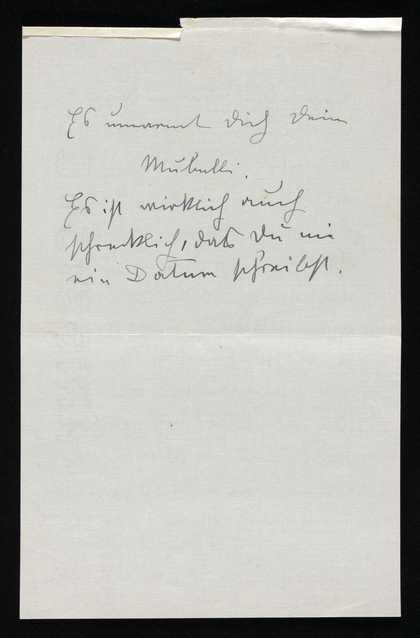 Es umarmt Dich Dein
Mukulli.
Es ist wirklich auch
schrecklich, daß Du nie
ein Datum schreibst.